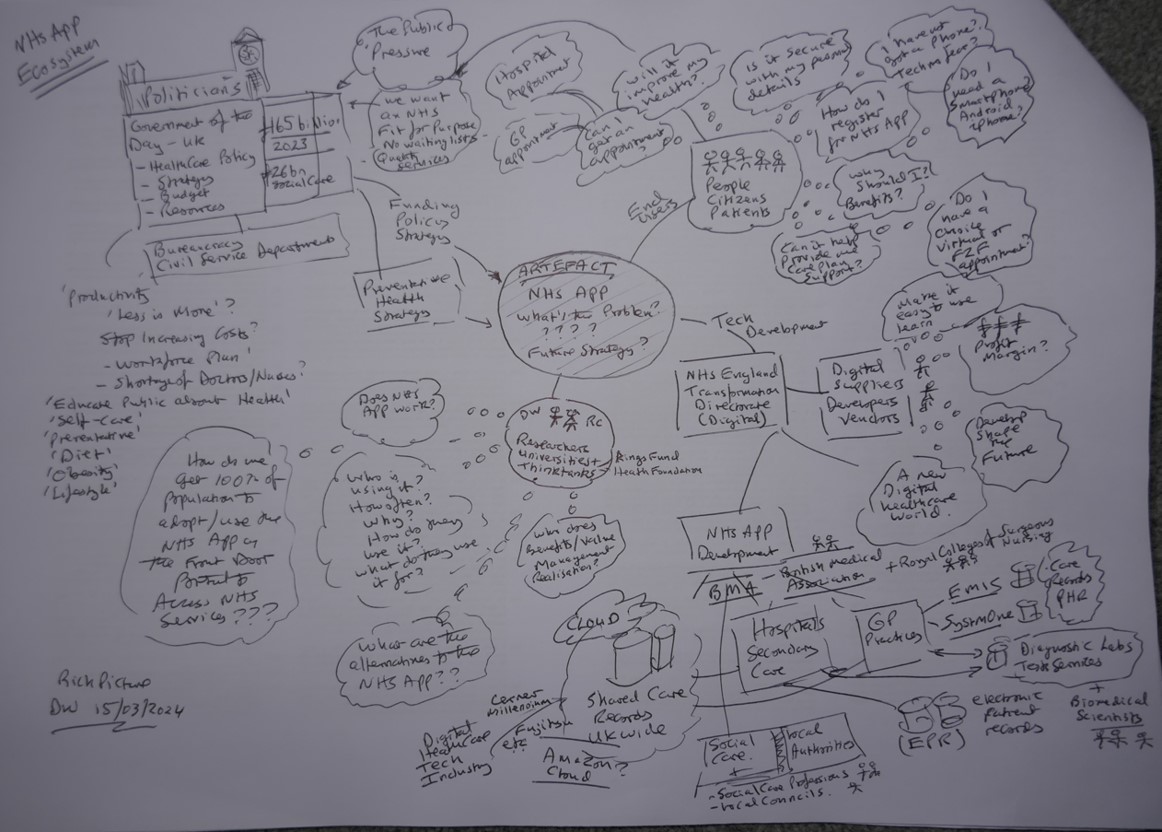 NHS APP
Ecosystem
Politicians
Government of the
Day - UK
- HealthCare Policy
- Strategy
- Budget
- Resources
2023
£26bn
Social Care
Bureaucracy
Civil Service Department
The Public
Pressure
we want
an NHS
Fit for Purpose
No waiting lists
Quality
Services
Funding
Policy
Strategy
Preventative
Health
Strategy
Hospital
Appointment
GP
appointment
will it
improve my
health?
Can I
get an
appointment
Is it secure
with my personal
details
I have not
got a Phone?
Techno fear?
Do I
need a
Smartphone
Android
iphone?
How do I
register
for NHS App
People
Citizens
Patients
End
Users
why
should I?
Benefits?
Can it help
Provide me
Care Plan
Support?
Do I
have a
choice
virtual or
F2F
appointment?
ARTEFACT
NHS APP
what's the Problem?
? ? ? ?
Future Strategy?
Tech
Development
NHS England
Transformation
Directorate
(Digital)
Digital
Suppliers
Developers
Vendors
Make it
easy to use
learn
£££
Profit
Margin?
Develop
Shape
the
Future
A new
Digital
healthcare
world.
'Productivity
'Less is More'?
Stop Increasing Costs?
- Workforce Plan'
- Shortage of Doctors/Nurses?
'Educate Public about Health'
'Self-Care'
'Preventative'
'Diet'
'Obesity'
'Lifestyle'
Does NHS
App work?
DW RC
Researchers
Universities +
Thinktanks - Kings Fund
Health Foundation
How do we
get 100% of
Population to
adopt/use the
NHS App as
the Front Door
Portal to
Access NHS
Services???
who is
using it?
How often?
why?
How do they
use it?
what do they use
it for?
who does
Benefits/Value
Management
Realisation?
what are the
alternatives to the
NHS App??
NHS App
Development
BMA
- British Medical
Association
+ Royal Colleges of Surgeons
Nursing
Hospitals
Secondary
Care
GP
Practices
EMIS
SystmOne
Care
Records
PHR
Diagnostic Labs
Test Services
+
Biomedical
Scientists
electronic
Patient
records
(EPR)
CLOUD
Shared Care
Records
UK wide
Cerner
Millennium
Fujitsu
etc
Amazon?
Cloud
Digital
HealthCare
Tech
Industry
Social
Care.
+
Local
Authorities
- Social Care Professions
- Local Councils.
Rich Picture
DW 15/03/2024